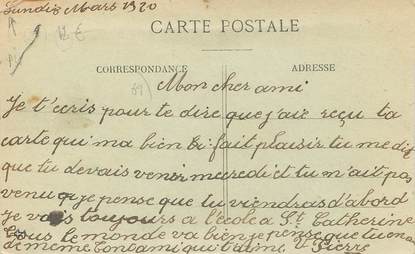 Lundi 8 Mars 1920
12 €
CARTE POSTALE
CORRESPONDANCE
ADRESSE
Mon cher ami
Je t'ecris pour te dire que j'ai reçu ta
carte qui m'a bien fait plaisir tu me dit
que tu devais venir mercredi et tu m'ait pas
venu je pense que tu viendras d'abord
Je vais toujours a l'école a St Catherine
tous le monde va bien je pense que tu en a
de meme ton ami qui t'aime Pierre